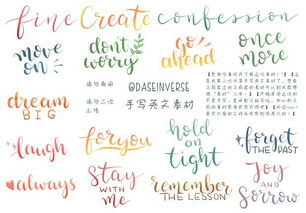 fine Create confession
move on
don't worry
go ahead
once more
dream BIG
请勿商用
请勿二次上传
@DASEINVERSE
手写英文素材
laugh
for you
hold on tight
forget THE PAST
always
Stay with me
remember THE LESSON
Joy and Sorrow